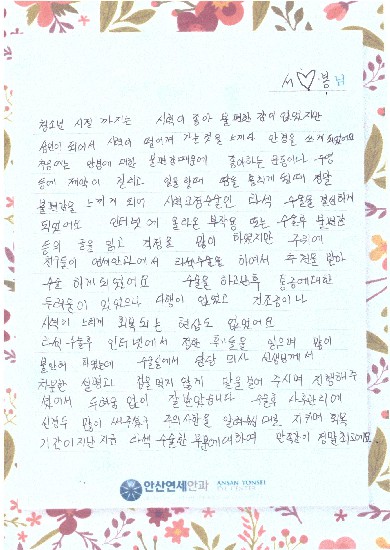 서♡봉님
청소년 시절 까지는 시력이 좋아 불편한 점이 없었지만
성인이 되어서 시력이 떨어져 가는것을 느끼며 안경을 쓰게 되었어요
처음에는 안경에 대한 불편함때문에 좋아하는 운동이나 수영
등에 제약이 생기고 일을할때 땀을 흘리게 될때 정말
불편함을 느끼게 되어 시력교정수술인 라섹 수술을 결심하게
되었어요 인터넷에 올라온 부작용 또는 수술후 불편함
등의 글을 읽고 걱정도 많이 하였지만 주위에
친구들이 연세안과에서 라섹수술을 하여서 추천을 받아
수술 하게 되었어요 수술을 하고난후 통증에대한
두려움이 있었으나 시림이 없었고 건조증이나
시력이 느리게 회복되는 현상도 없었어요
라섹수술후 인터넷에서 정한 후기들을 읽으며 많이
불안해 하였는데 수술실에서 담당 의사 선생님께서
차분한 설명과 겁을 먹지 않게 말을 걸어 주시며 진행해주
셨어서 두려움 없이 잘 받았습니다 수술후 사후관리에
신경도 많이 써주시구 주의사항을 알려주신 대로 지키며 회복
기간이 지난 지금 라섹 수술한 부분에 대하여 만족감이 정말 최고에요
안산연세안과 ANSAN YONSEI
EYE CENTER